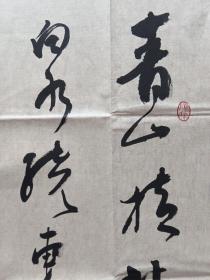 青山横北
白水繞東